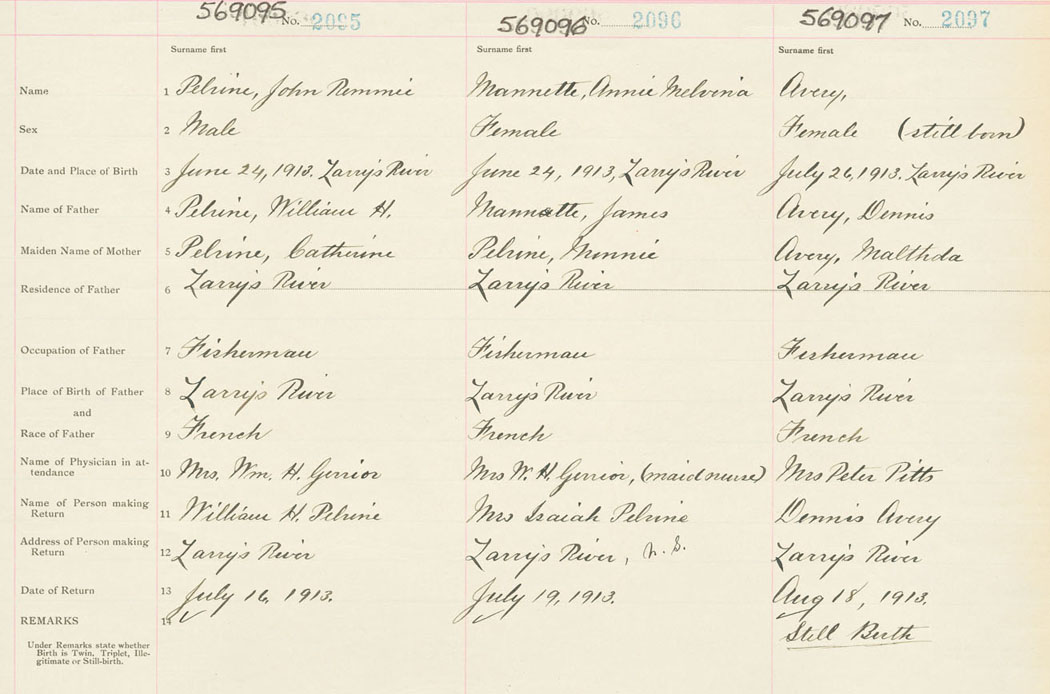 569095 No. 2095 569096 No. 2096 569097 No. 2097
Surname first Surname first Surname first
Name 1 Pelrine, John Remmie Mannette, Annie Melvina Avery,
Sex 2 Male Female Female (still born)
Date and Place of Birth 3 June 24, 1913. Larry's River June 24, 1913, Larry's River July 26, 1913. Larry's River
Name of Father 4 Pelrine, William H. Mannette, James Avery, Dennis
Maiden Name of Mother 5 Pelrine, Catherine Pelrine, Minnie Avery, Malthda
Residence of Father 6 Larry's River Larry's River Larry's River
Occupation of Father 7 Fisherman Fisherman Fisherman
Place of Birth of Father 8 Larry's River Larry's River Larry's River
and
Race of Father 9 French French French
Name of Physician in at-
tendance 10 Mrs. Wm. H. Gerrior Mrs W. H. Gerrior, (maid nurse) Mrs Peter Pitts
Name of Person making
Return 11 William H. Pelrine Mrs Isaiah Pelrine Dennis Avery
Address of Person making
Return 12 Larry's River Larry's River, N.S. Larry's River
Date of Return 13 July 16, 1913. July 19, 1913. Aug 18, 1913.
REMARKS 14 Still Birth
Under Remarks state whether
Birth is Twin, Triplet, Ille-
gitimate or Still-birth.